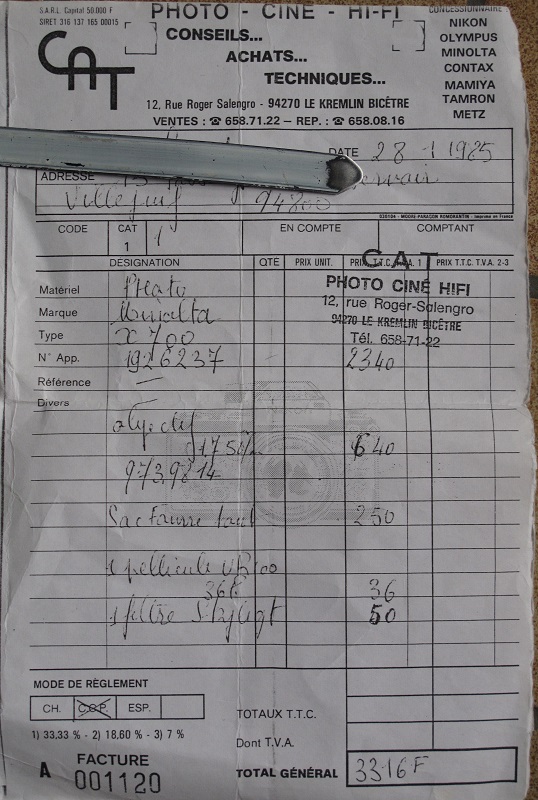 S.A.R.L. Capital 50.000 F
SIRET 316 137 165 00015
PHOTO - CINÉ - HI-FI
CAT
CONSEILS...
ACHATS...
TECHNIQUES...
12, Rue Roger Salengro - 94270 LE KREMLIN BICÊTRE
VENTES : ☎ 658.71.22 – REP. : ☎ 658.08.16
CONCESSIONNAIRE
NIKON
OLYMPUS
MINOLTA
CONTAX
MAMIYA
TAMRON
METZ
DATE 28 1 1985
ADRESSE
Villejuif 94800
030104 - MOORE-PARAGON ROMORANTIN - Imprimé en France
CODE CAT 1 1 EN COMPTE COMPTANT
DESIGNATION QTE PRIX UNIT. PRIX T.T.C. T.V.A. 1 PRIX T.T.C. T.V.A. 2-3
C A T
PHOTO CINÉ HIFI
12, rue Roger-Salengro
94270 LE KREMLIN BICÊTRE
Tél. 658-71-22
Matériel Photo
Marque Minolta
Type X700
N° App. 1926237 2340
Référence —
Divers
objectif
1,7 50 640
9739814
Sac Fourre tout 250
1 pellicule 100
36 36
1 filtre Skyligt 50
MODE DE RÈGLEMENT
CH. C.C.P. ESP.
1) 33,33 % - 2) 18,60 % - 3) 7 %
TOTAUX T.T.C.
Dont T.V.A.
TOTAL GÉNÉRAL 3316 F
FACTURE
A 001120